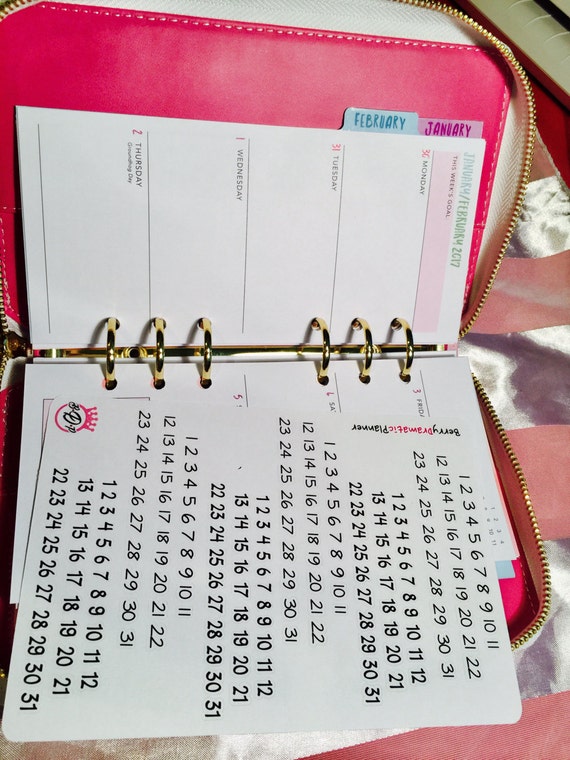 FEBRUARY
JANUARY
JANUARY/FEBRUARY 2017
THIS WEEK'S GOAL
30 MONDAY
31 TUESDAY
1 WEDNESDAY
2 THURSDAY
Groundhog Day
3
5 S
BerryDramaticPlanner
1 2 3 4 5 6 7 8 9 10 11
12 13 14 15 16 17 18 19 20 21 22
23 24 25 26 27 28 29 30 31
1 2 3 4 5 6 7 8 9 10 11 12
13 14 15 16 17 18 19 20 21
22 23 24 25 26 27 28 29 30 31
1 2 3 4 5 6 7 8 9 10 11
12 13 14 15 16 17 18 19 20 21 22
23 24 25 26 27 28 29 30 31
1 2 3 4 5 6 7 8 9 10 11 12
13 14 15 16 17 18 19 20 21
22 23 24 25 26 27 28 29 30 31
1 2 3 4 5 6 7 8 9 10 11
12 13 14 15 16 17 18 19 20 21 22
23 24 25 26 27 28 29 30 31
1 2 3 4 5 6 7 8 9 10 11 12
13 14 15 16 17 18 19 20 21
22 23 24 25 26 27 28 29 30 31
BDP